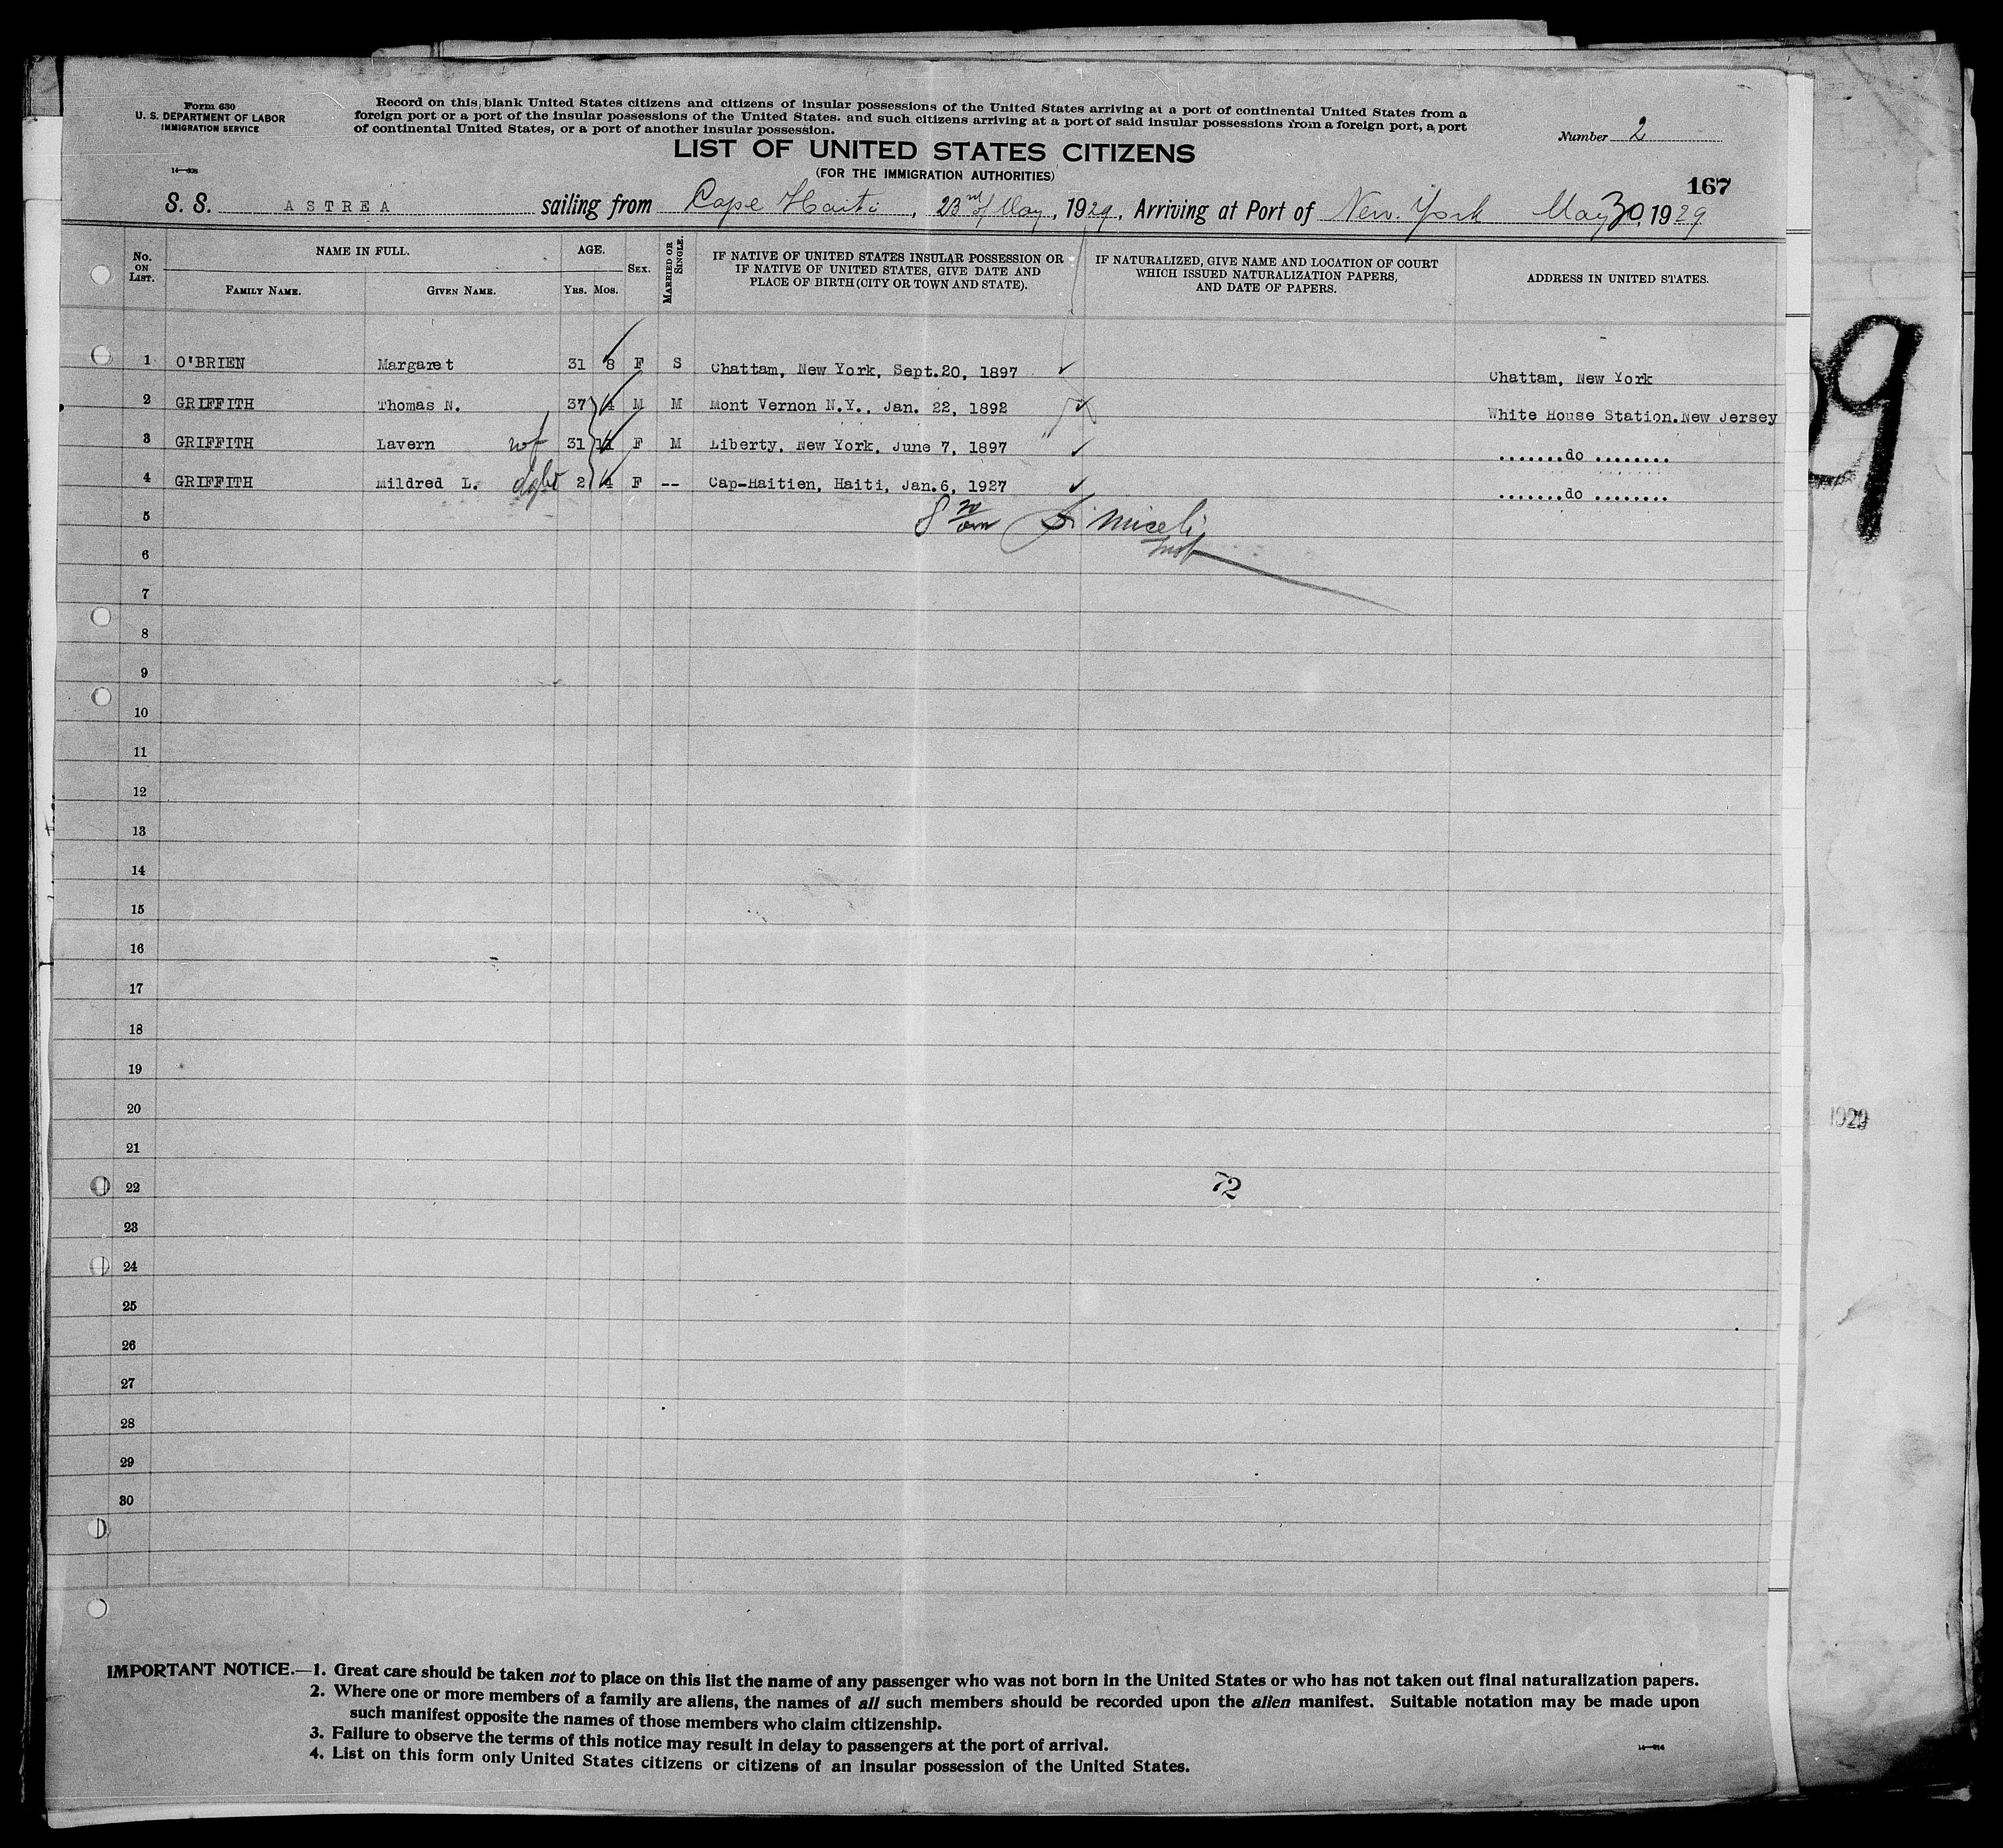 Form 630
U. S. DEPARTMENT OF LABOR
IMMIGRATION SERVICE
14—608
Record on this blank United States citizens and citizens of insular possessions of the United States arriving at a port of continental United States from a
foreign port or a port of the insular possessions of the United States. and such citizens arriving at a port of said insular possessions from a foreign port, a port
of continental United States, or a port of another insular possession.
Number 2
LIST OF UNITED STATES CITIZENS
(FOR THE IMMIGRATION AUTHORITIES)
167
S. S. ASTREA sailing from Cape Haiti, 23rd of May, 1929, Arriving at Port of New. York May 30, 1929
No. ON LIST. NAME IN FULL. AGE. SEX. MARRIED OR SINGLE. IF NATIVE OF UNITED STATES INSULAR POSSESSION OR IF NATIVE OF UNITED STATES, GIVE DATE AND PLACE OF BIRTH (CITY OR TOWN AND STATE). IF NATURALIZED, GIVE NAME AND LOCATION OF COURT WHICH ISSUED NATURALIZATION PAPERS, AND DATE OF PAPERS. ADDRESS IN UNITED STATES.
FAMILY NAME. GIVEN NAME. YRS. MOS.
1 O'BRIEN Margaret 31 8 F S Chattam, New York, Sept.20, 1897 ✓ Chattam, New York
2 GRIFFITH Thomas N. 37 4 M M Mont Vernon N.Y., Jan. 22, 1892 ✓ White House Station.New Jersey
3 GRIFFITH Lavern wf 31 11 F M Liberty, New York, June 7, 1897 ✓ .......do ........
4 GRIFFITH Mildred L. dght 2 4 F -- Cap-Haitien, Haiti, Jan.6, 1927 ✓ .......do ........
5 Miceli
6 Insp
7
8
9
10
11
12
13
14
15
16
17
18
19
20
21
22 72
23
24
25
26
27
28
29
30
IMPORTANT NOTICE.—1. Great care should be taken not to place on this list the name of any passenger who was not born in the United States or who has not taken out final naturalization papers.
2. Where one or more members of a family are aliens, the names of all such members should be recorded upon the alien manifest. Suitable notation may be made upon
such manifest opposite the names of those members who claim citizenship.
3. Failure to observe the terms of this notice may result in delay to passengers at the port of arrival.
4. List on this form only United States citizens or citizens of an insular possession of the United States.
14—914
29
1929